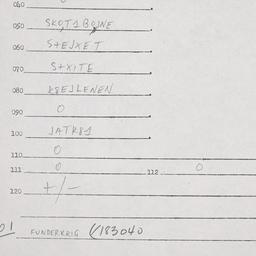 040
050 SKOT1BOJNE
060 S+EJXET
070 S+XITE
080 K8EJLENEN
090 0
100 JATK81
110 0
111 0 112 0
120 +/-
01 FUNDERKRIG (/183040